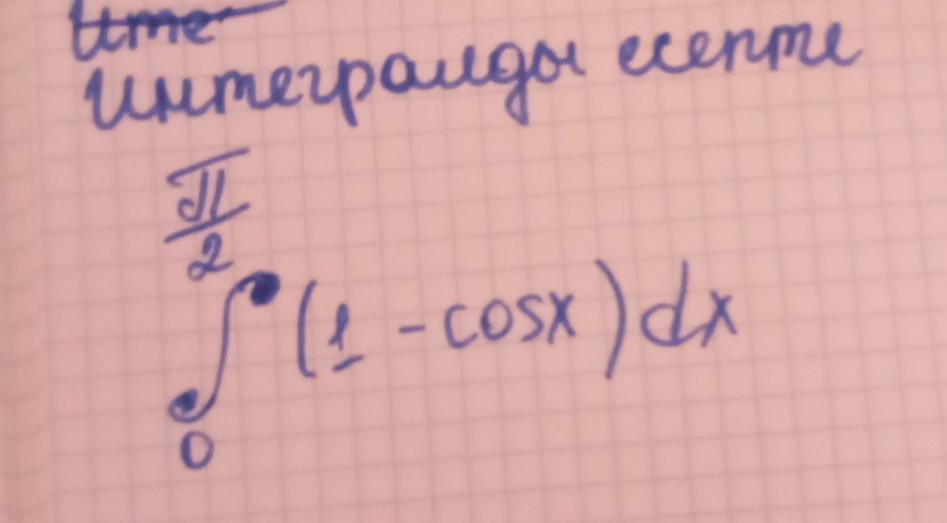 Интегралды есепте
π/2
∫ (1 - cosx) dx
0